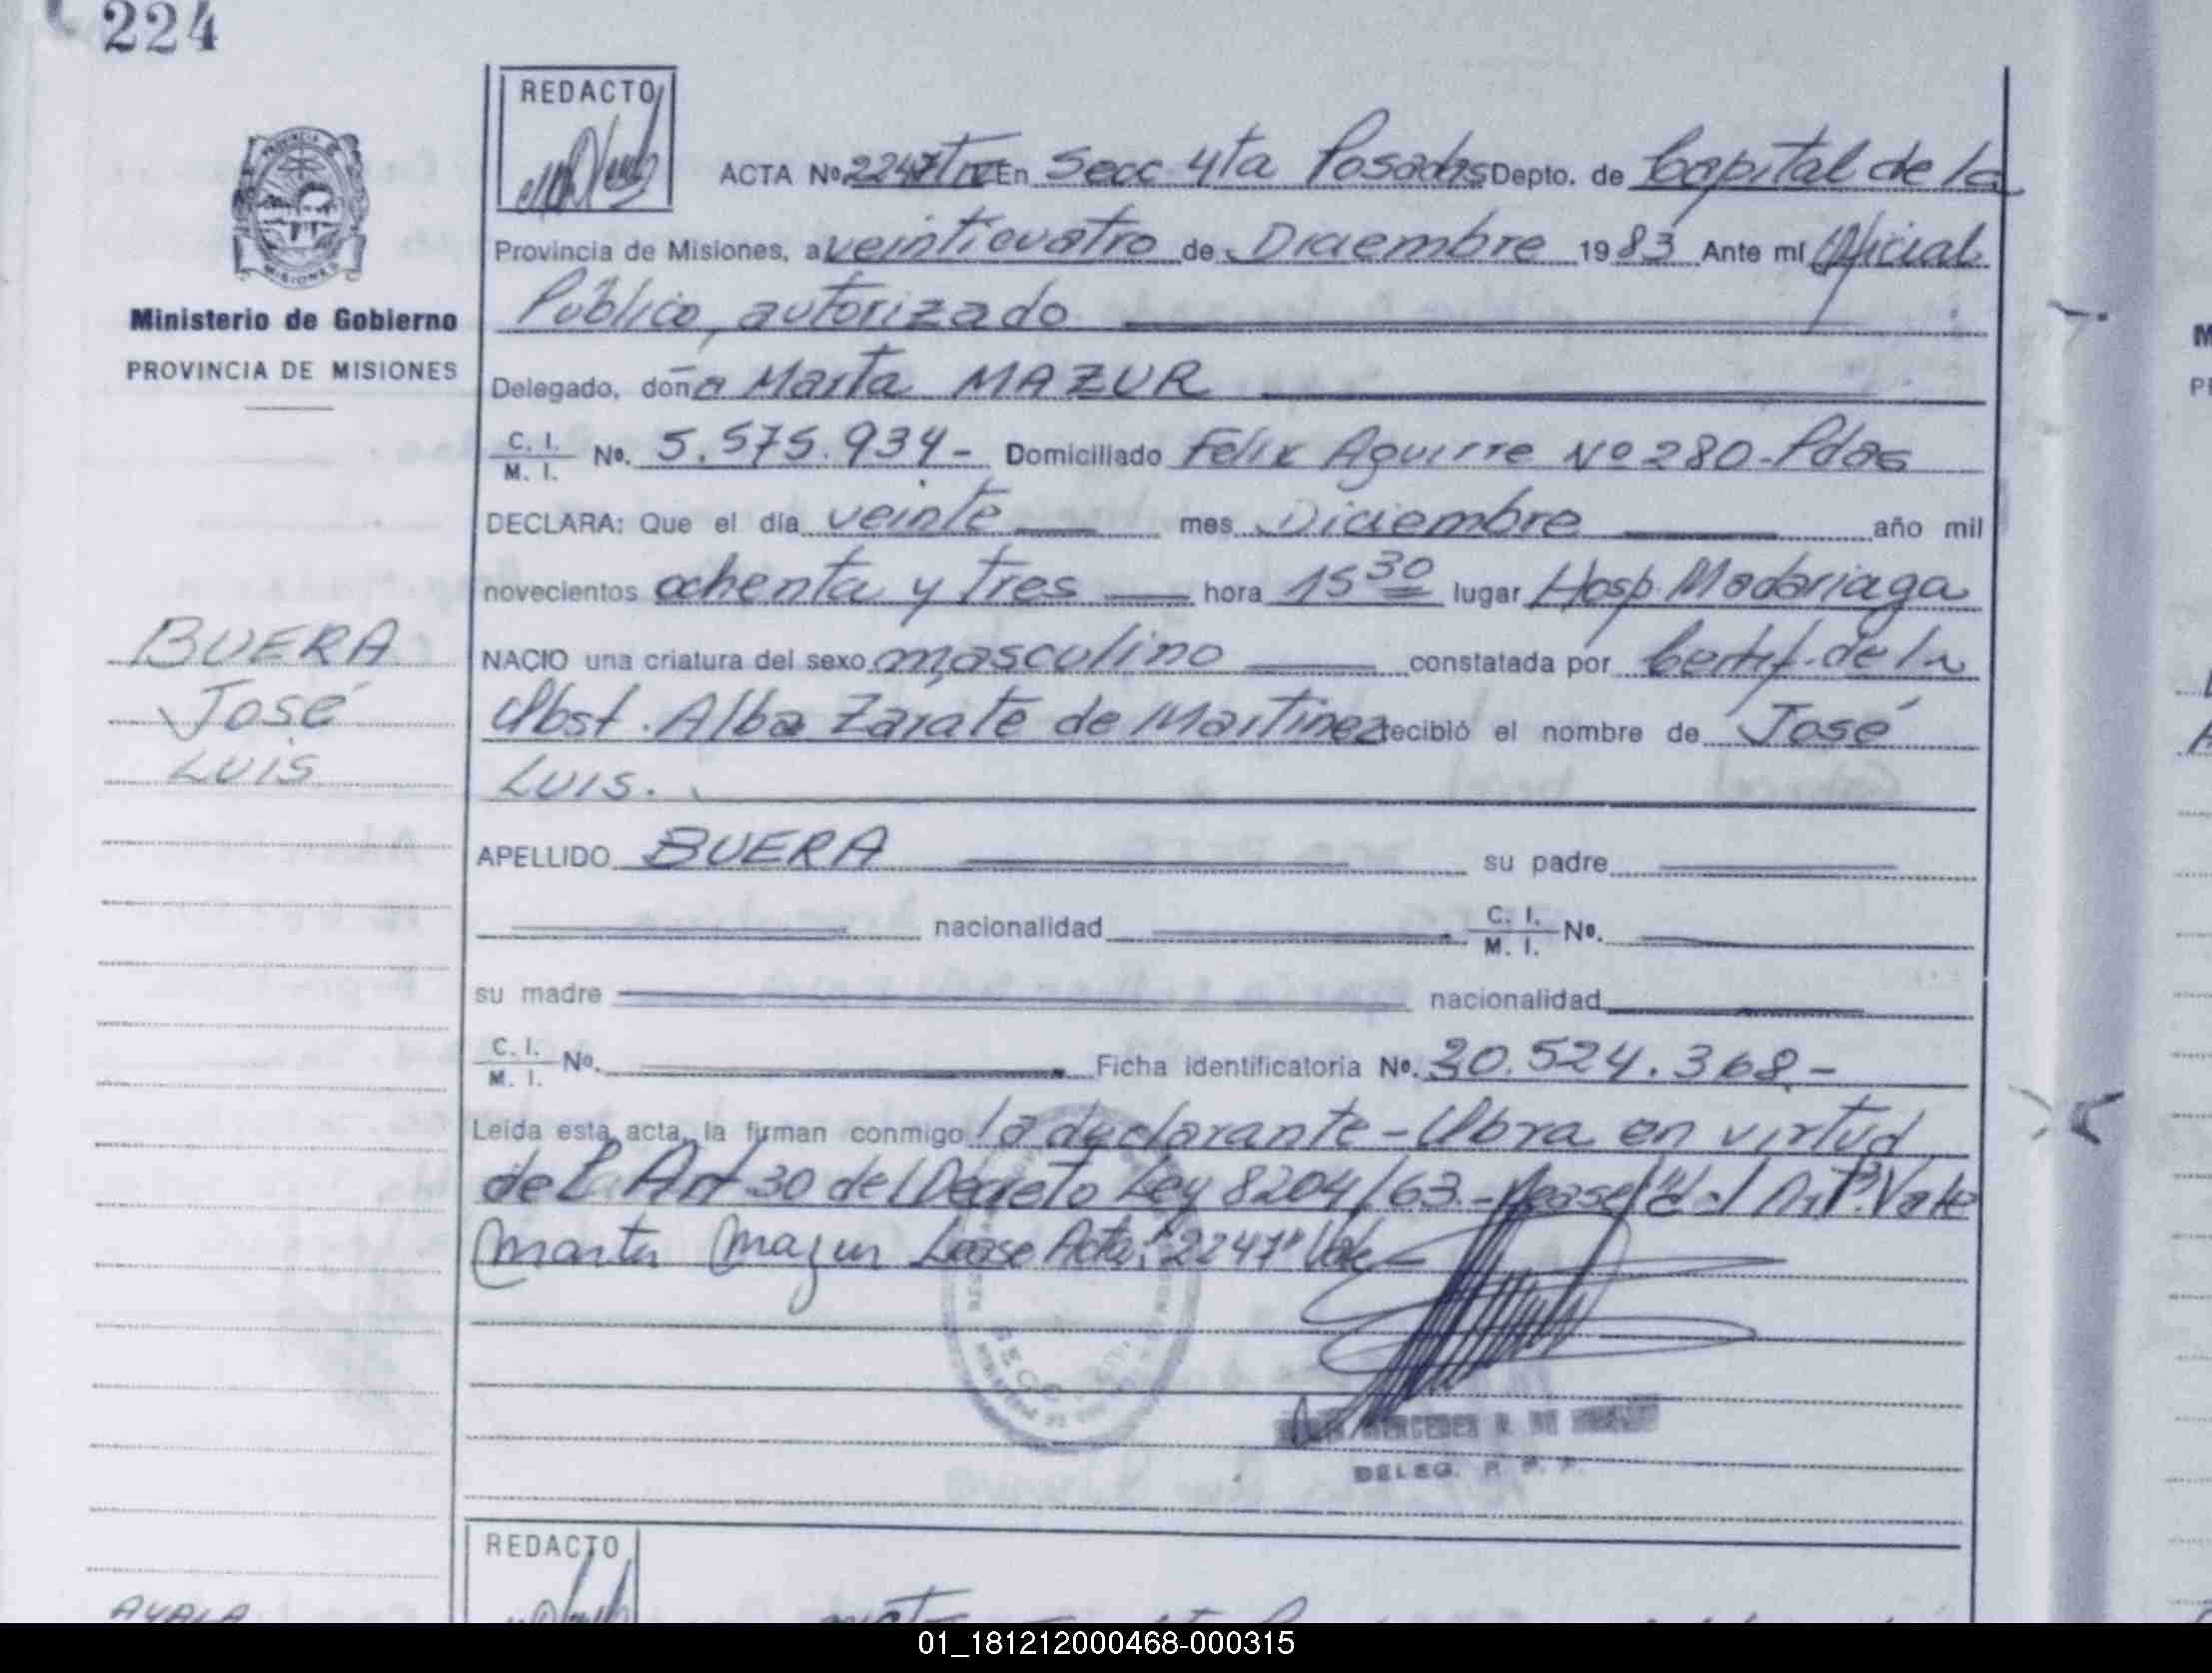 224
REDACTO
ACTA Nº 2247 En Secc 4ta Posadas Depto. de Capital de la
Provincia de Misiones, a veinticuatro de Diciembre 1983 Ante mí Oficial
Público, autorizado
Ministerio de Gobierno
PROVINCIA DE MISIONES
Delegado, doña Marta MAZUR
C. I. / M. I. Nº. 5.575.934- Domiciliado Félix Aguirre Nº 280-Pdas
DECLARA: Que el día veinte mes Diciembre año mil
novecientos ochenta y tres hora 15 30 lugar Hosp. Madariaga
NACIO una criatura del sexo masculino constatada por Certif. de la
Obst. Alba Zarate de Martinez recibió el nombre de José
Luis.
BUERA
José
Luis
APELLIDO BUERA su padre
nacionalidad C. I. / M. I. Nº.
su madre nacionalidad
C. I. / M. I. Nº. Ficha identificatoria Nº. 30.524.368-
Leída esta acta, la firman conmigo la declarante - Obra en virtud
del Art 30 del Decreto Ley 8204/63.- Vale
Marta Mazur Lease Acta: "2247" Vale
DELEG. R. P. P.
REDACTO
AYALA
01_181212000468-000315